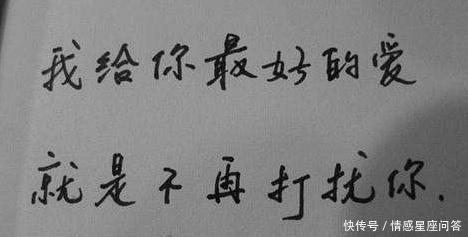 我给你最好的爱
就是不再打扰你.
快传号/情感星座问答